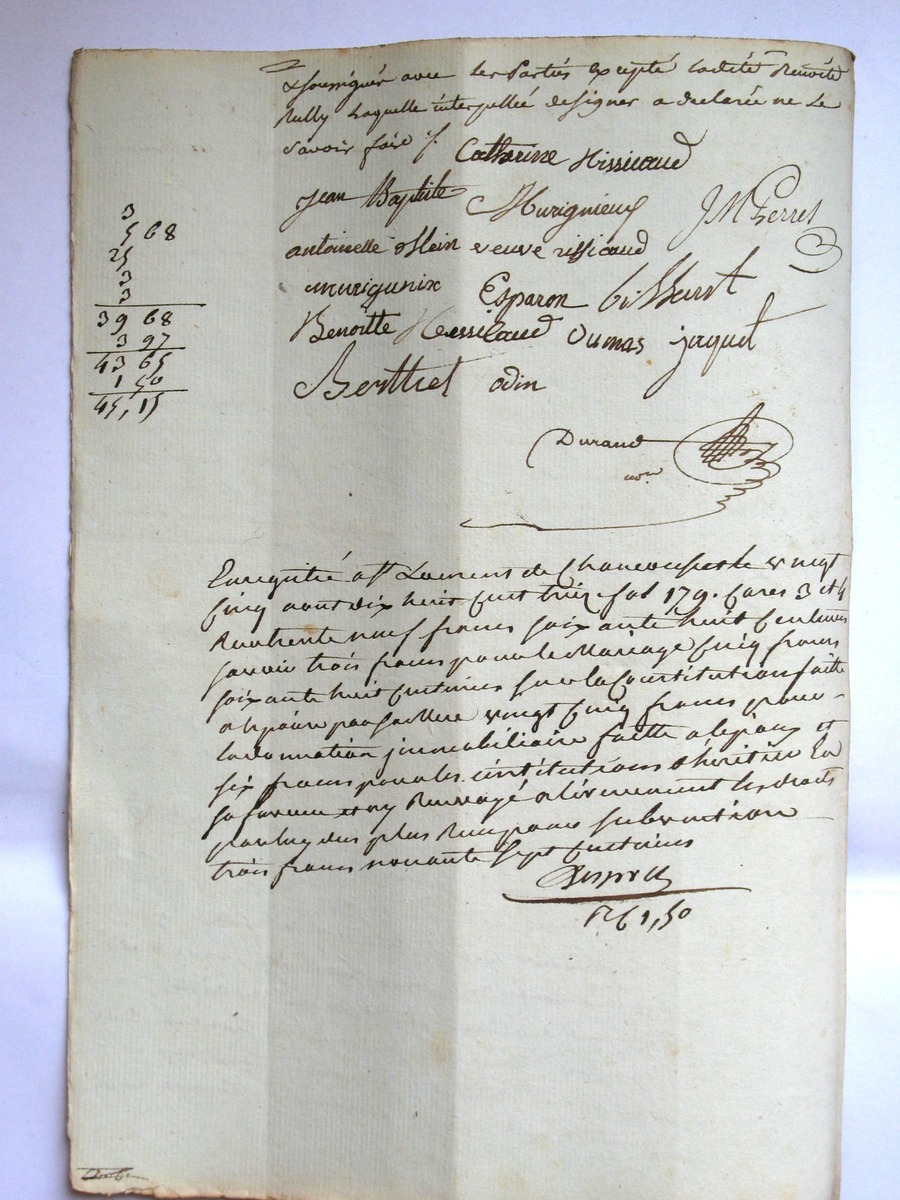 & soussignés avec les Parties excepté ladite Benoite
Rully Laquelle interpellée de signer a declarée ne Le
Savoir faire /.
Catharine Rissicaud
Jean Baptiste Murignieux JM Perret
antoinette veuve rissicaud
murigunix Esparon
Benoitte Dumas jaquet
Berthet odin
Durand
nore
3
5 68
25
3
3
39 68
3 97
43 65
1 50
45, 15
Enregistré a St Laurent de Chamousset le vingt
Cinq aout dix huit cent treize fol 179. Cases 3 et 4
Reçu trente neuf francs soixante huit Centimes
savoir trois francs pour le Mariage Cinq francs
soixante huit Centimes sur la Constitution faitte
a lepoux par sa Mere vingt Cinq francs pour
la donnation immobiliaire faitte a lepoux et
six francs pour les institutions dhéritier En
sa faveur et
plus Reçu pour subvention
trois francs nonante sept Centimes
1,50